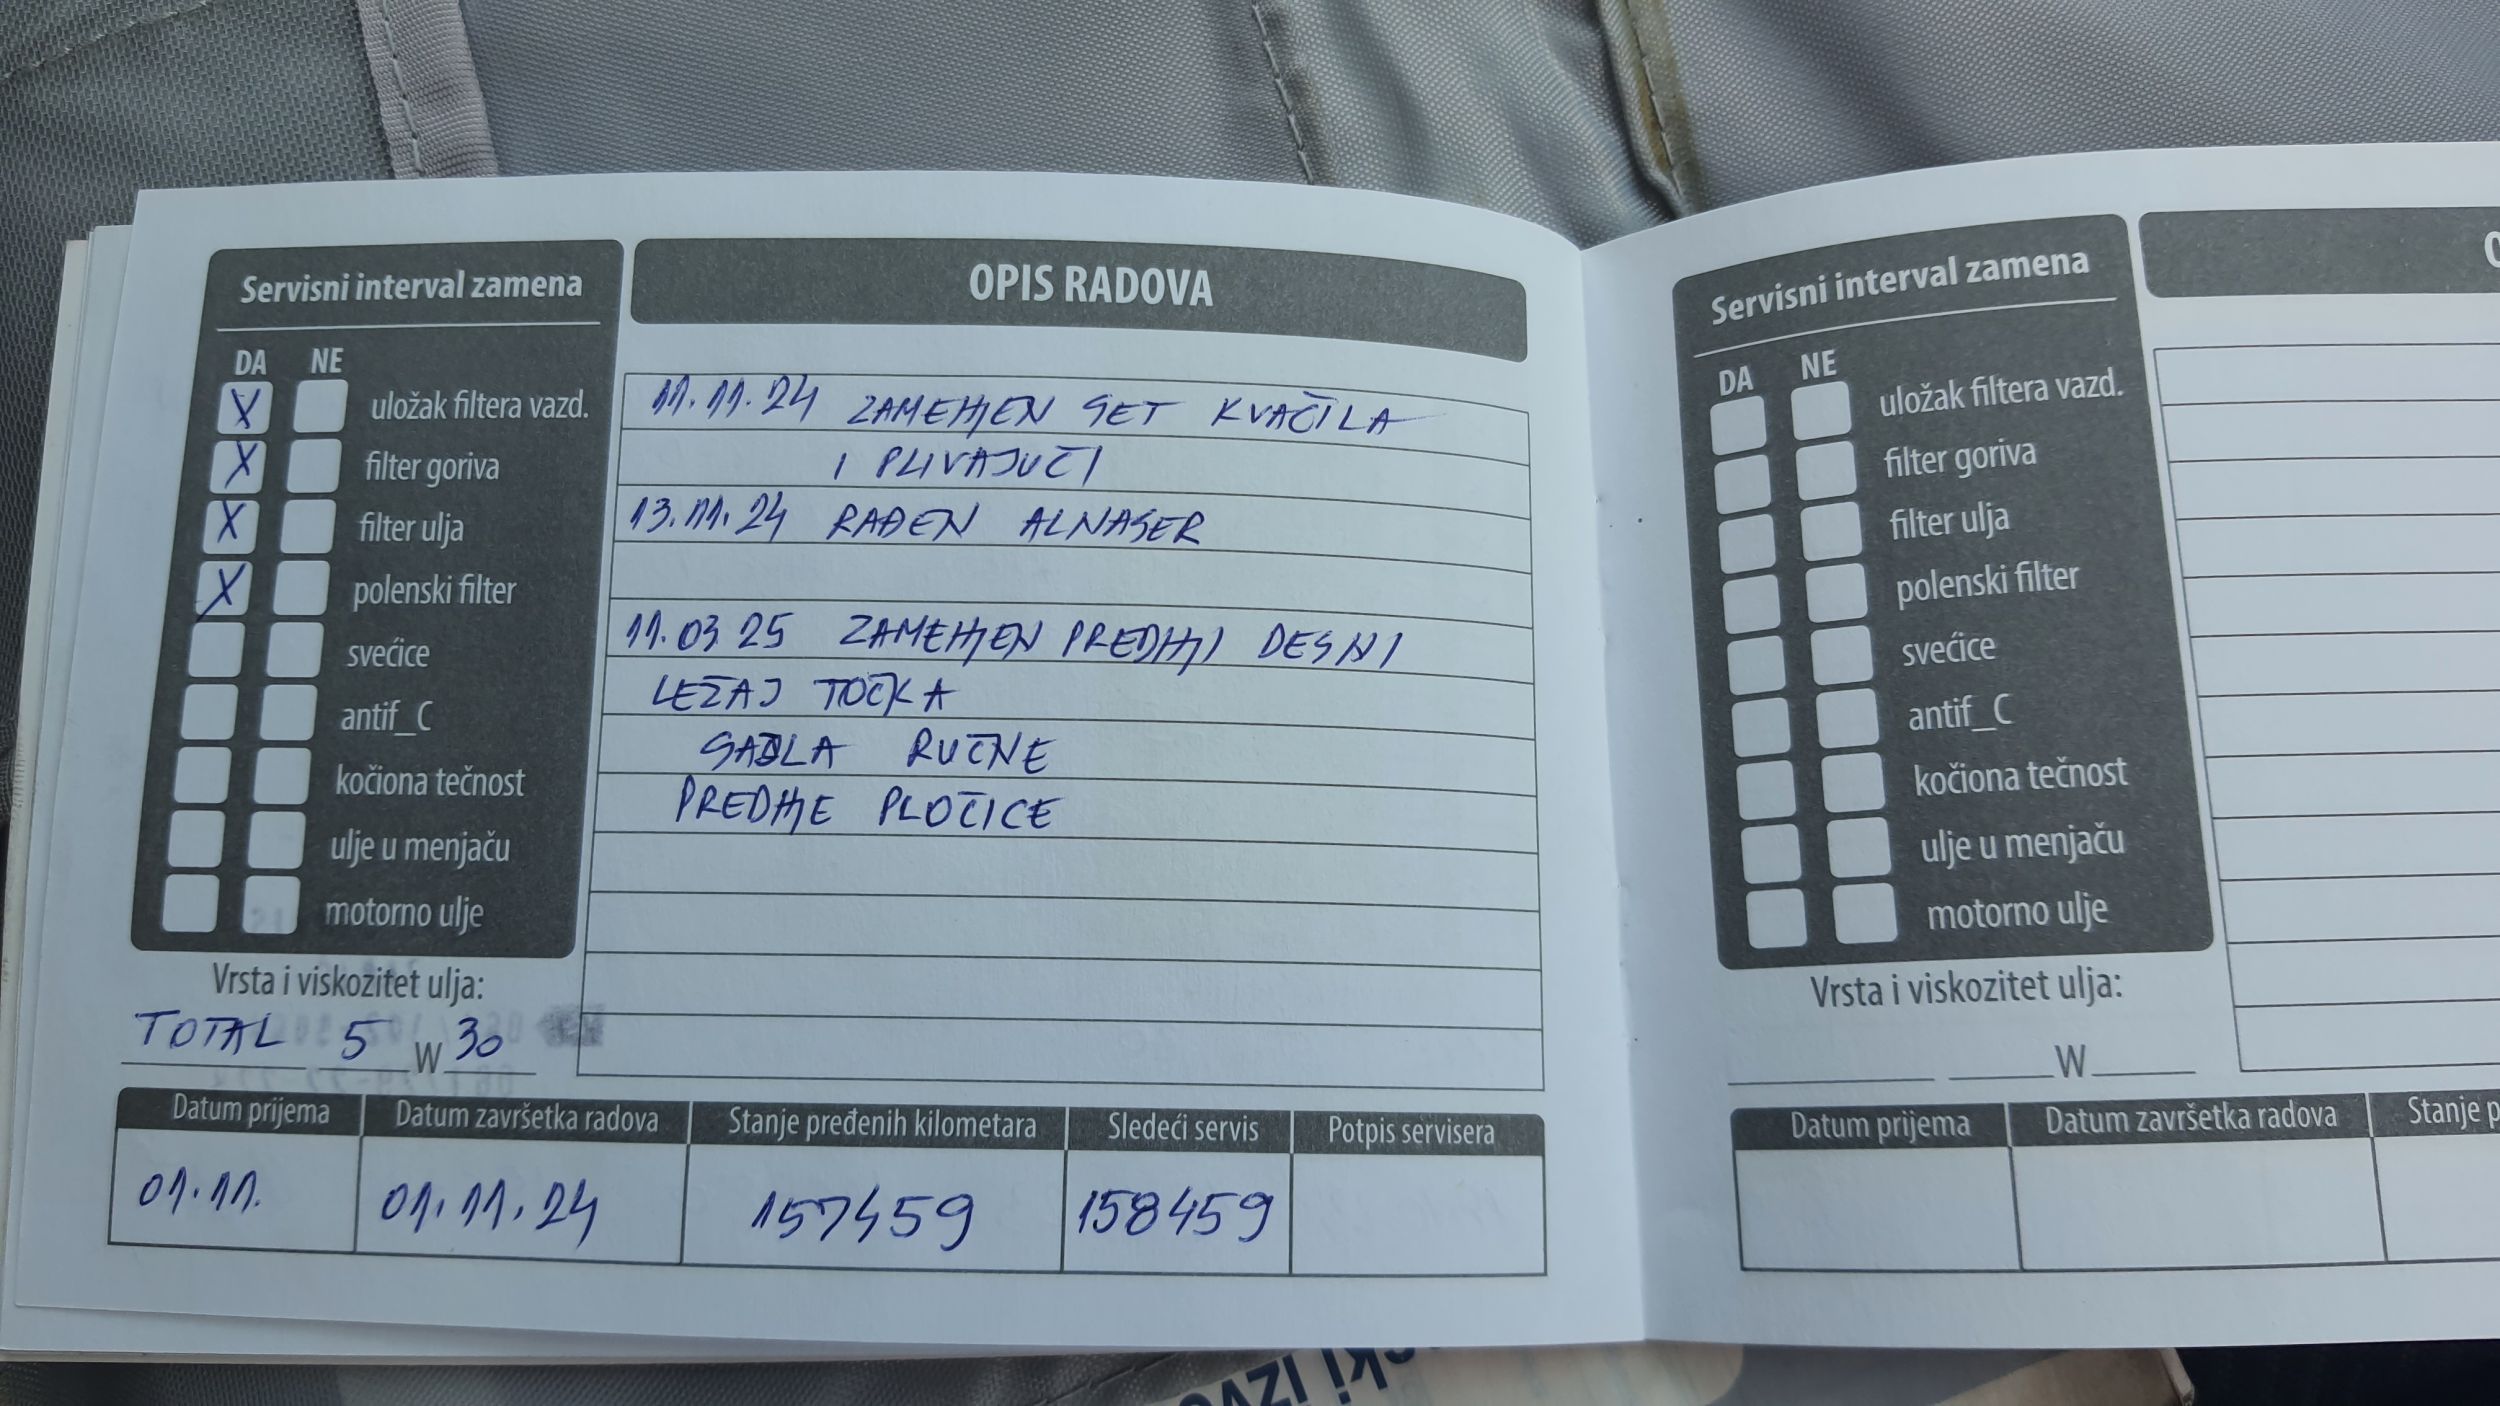 Servisni interval zamena
DA NE
X uložak filtera vazd.
X filter goriva
X filter ulja
X polenski filter
svećice
antif_C
kočiona tečnost
ulje u menjaču
motorno ulje
Vrsta i viskozitet ulja:
TOTAL 5 W 30
OPIS RADOVA
11.11.24 ZAMENJEN SET KVAČILA
I PLIVAJUĆI
13.11.24 RAĐEN ALNASER
11.03 25 ZAMENJEN PREDNJI DESNI
LEŽAJ TOČKA
SAJLA RUČNE
PREDNJE PLOČICE
Datum prijema Datum završetka radova Stanje pređenih kilometara Sledeći servis Potpis servisera
01.11. 01.11.24 157459 158459
Servisni interval zamena
DA NE
uložak filtera vazd.
filter goriva
filter ulja
polenski filter
svećice
antif_C
kočiona tečnost
ulje u menjaču
motorno ulje
Vrsta i viskozitet ulja:
W
O
Datum prijema Datum završetka radova Stanje p